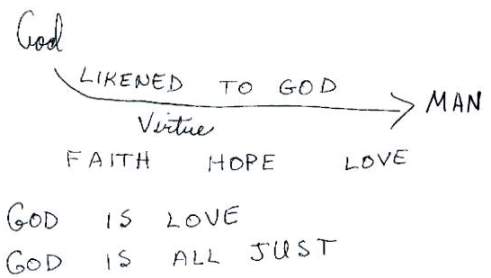 God
LIKENED TO GOD
MAN
Virtue
FAITH HOPE LOVE
GOD IS LOVE
GOD IS ALL JUST